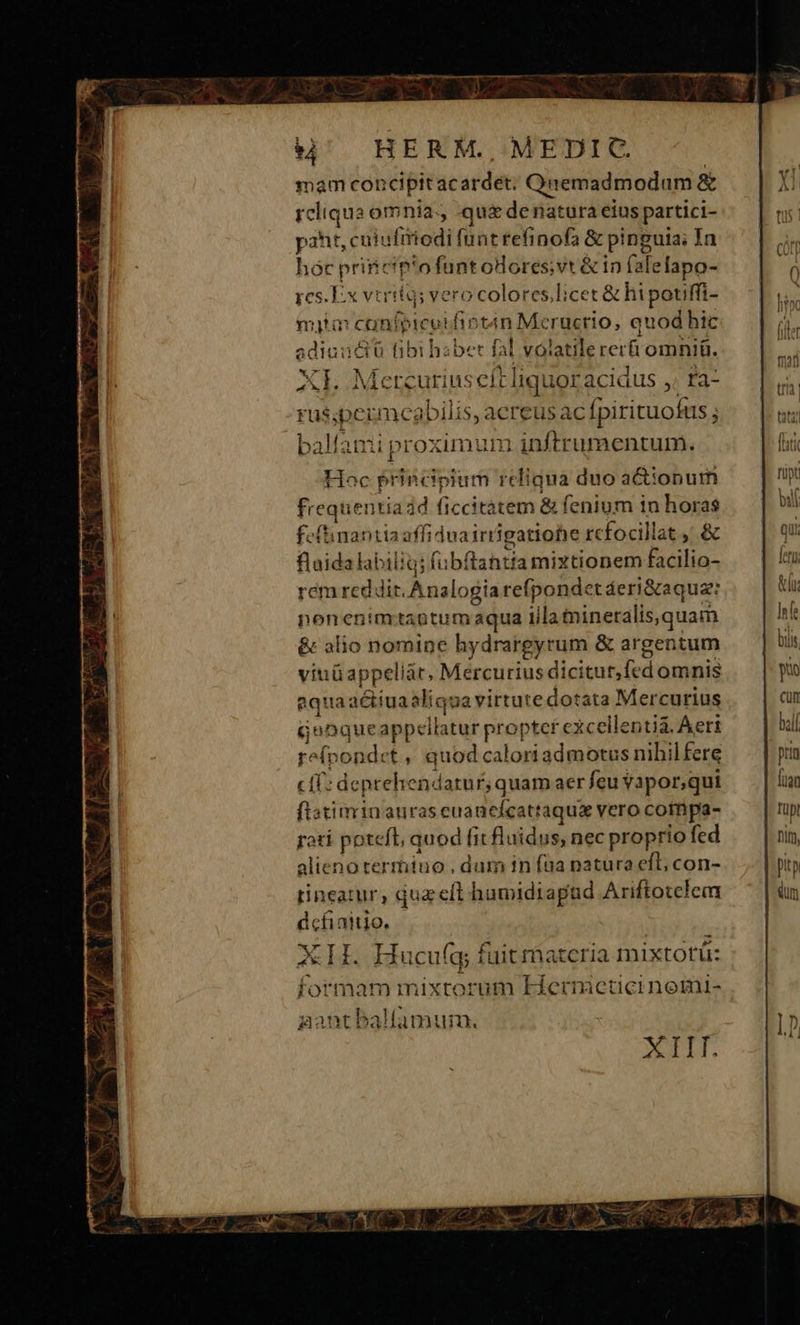 HERM. MEDIC.
mam concipit ac ardet. Quemadmodum &
reliqua omnia, quæ de natura eius partici-
pant, cuiuſmodi ſunt reſinoſa & pinguia; In
hoc principio ſunt odores; vt & in ſale ſapo-
res. Ex vtriſq; vero colores, licet & hi potiſſi-
mum conſpicui fiant in Mercurio, quod hic
adiunctū ſibi habet ſal volatile rerū omniū.
XI. Mercurius eſt liquor acidus, ra-
rus, permeabilis, aereus ac ſpirituoſus;
balſami proximum inſtrumentum.
Hoc principium reliqua duo actionum
frequentia ad ſiccitatem & ſenium in horas
feſtinantia aſſidua irrigatione refocillat, &
fluida labiliq; ſubſtantia mixtionem facilio-
rem reddit. Analogia reſpondet áeri & aquæ:
non enim tantum aqua illa mineralis, quam
& alio nomine hydrargyrum & argentum
viuū appellāt, Mercurius dicitur, ſed omnis
aqua actiua aliqua virtute dotata Mercurius
quoque appellatur propter excellentiā. Aeri
reſpondet, quod calori admotus nihil fere
eſſe deprehendatur, quam aer ſeu vapor, qui
ſtatim in auras euaneſcat: aquæ vero compa-
rari poteſt, quod ſit fluidus, nec proprio ſed
alieno termino, dum in ſua natura eſt, con-
tineatur, quæ eſt humidi apud Ariſtotelem
definitio.
XII. Hucuſq; fuit materia mixtorū:
formam mixtorum Hermetici nomi-
nant balſamum.
XIII.